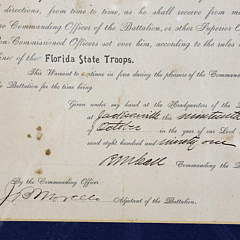 directions, from time to time, as he shall receive from me
Commanding Officer of the Battalion, or other Superior O
on-Commissioned Officers set over him, according to the rules
ine of the Florida State Troops.
This Warrant to continue in force during the pleasure of the Commander
the Battalion for the time being.
Given under my hand at the Headquarters of the
at Jacksonville this nineteenth
of October in the year of our Lord
sand eight hundred and ninety one
Commanding the
By the Commanding Officer
Adjutant of the Battalion.